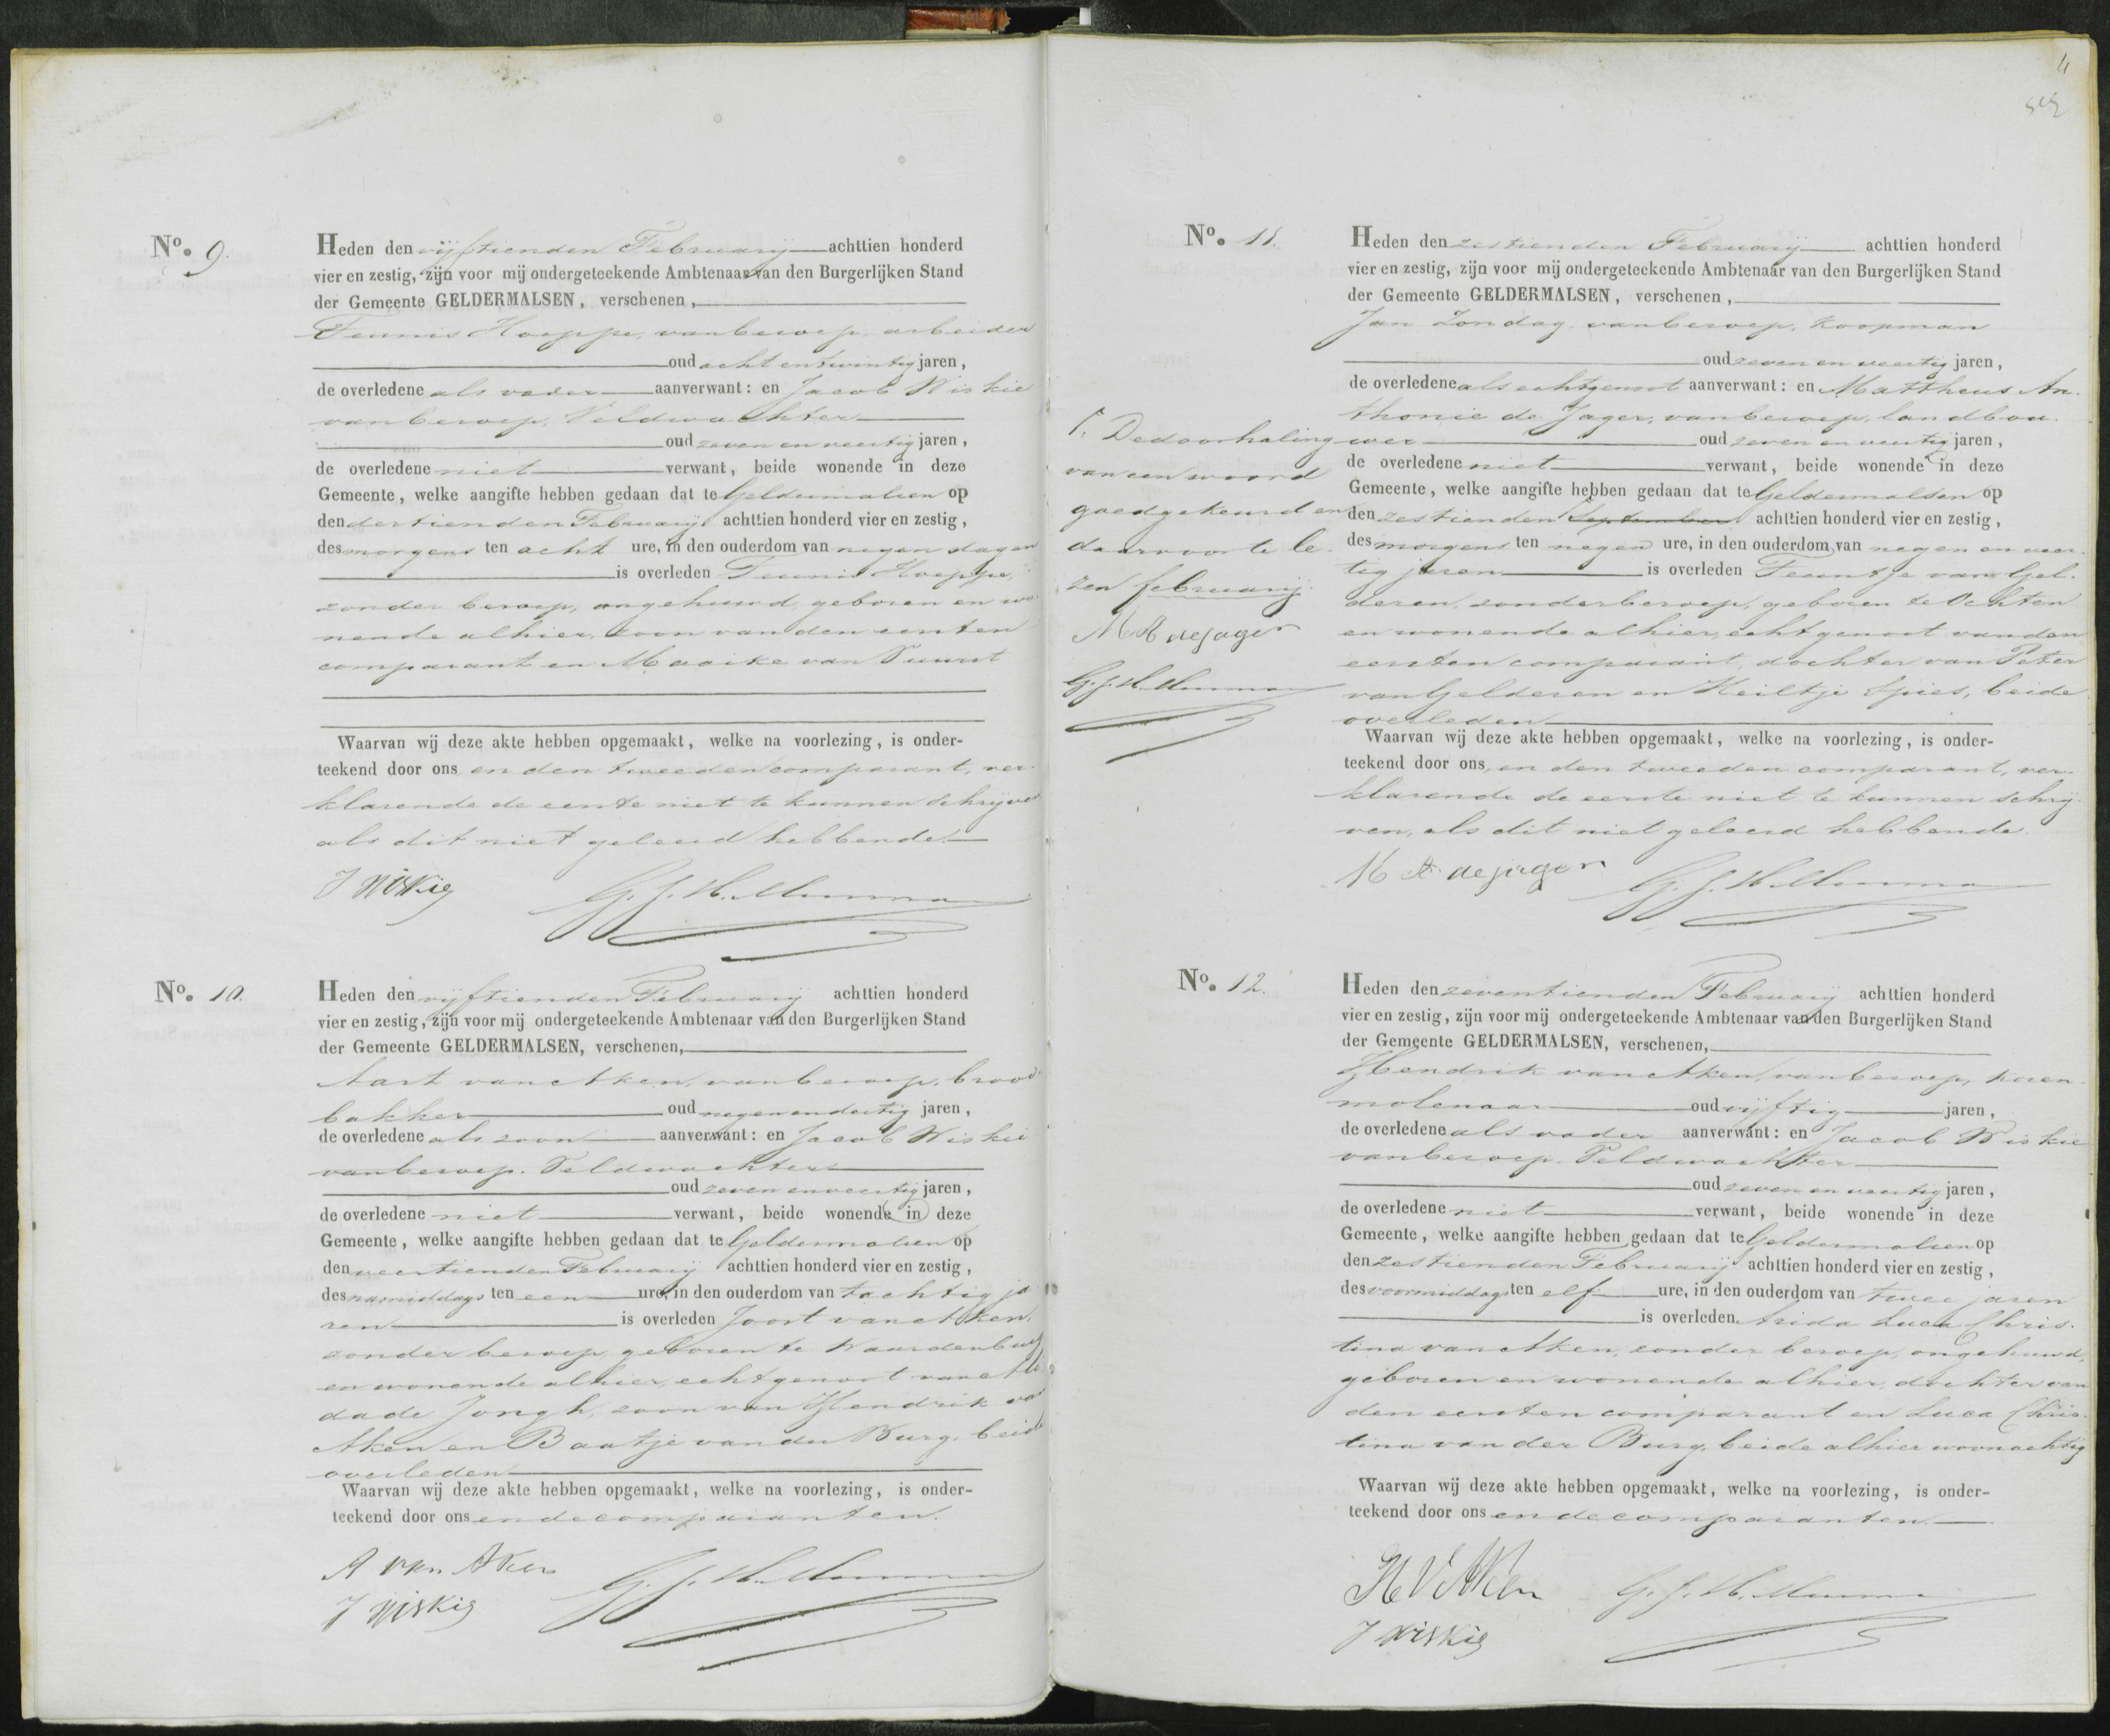 No. 9.
Heden den vijftienden Februarij achttien honderd
vier en zestig, zijn voor mij ondergeteekende Ambtenaar van den Burgerlijken Stand
der Gemeente GELDERMALSEN, verschenen,
Teunis Hoeppe, van beroep, arbeider
oud acht en twintig jaren,
de overledene als vader aanverwant: en Jacob Wiskie
van beroep, Veldwachter
oud zeven en veertig jaren,
de overledene niet verwant, beide wonende in deze
Gemeente, welke aangifte hebben gedaan dat te Geldermalsen op
den dertienden Februarij achttien honderd vier en zestig,
des morgens ten acht ure, in den ouderdom van negen dagen
is overleden Teunis Hoeppe,
zonder beroep, ongehuwd, geboren en wo
nende alhier, zoon van den eersten
comparant en Maaike van
Waarvan wij deze akte hebben opgemaakt, welke na voorlezing, is onder-
teekend door ons en den tweeden comparant, ver-
klarende de eerste niet te kunnen schrijven
als dit niet geleerd hebbende.
J Wiskie G. J. H.
No. 10.
Heden den vijftienden Februarij achttien honderd
vier en zestig, zijn voor mij ondergeteekende Ambtenaar van den Burgerlijken Stand
der Gemeente GELDERMALSEN, verschenen,
Aart van Aken, van beroep, brood-
bakker oud negen en dertig jaren,
de overledene als zoon aanverwant: en Jacob Wiskie
van beroep. Veldwachter
oud zeven en veertig jaren,
de overledene niet verwant, beide wonende in deze
Gemeente, welke aangifte hebben gedaan dat te Geldermalsen op
den veertienden Februarij achttien honderd vier en zestig,
des namiddags ten een ure, in den ouderdom van tachtig ja
ren is overleden Joost van Aken,
zonder beroep, geboren te Waardenburg
en wonende alhier, echtgenoot van
da de Jongh, zoon van Hendrik van
Aken en Baatje van der Burg, beide
overleden
Waarvan wij deze akte hebben opgemaakt, welke na voorlezing, is onder-
teekend door ons en de comparanten.
A van Aken G. J. H.
J Wiskie
4
No. 11.
Heden den zestienden Februarij achttien honderd
vier en zestig, zijn voor mij ondergeteekende Ambtenaar van den Burgerlijken Stand
der Gemeente GELDERMALSEN, verschenen,
Jan Zondag, van beroep, koopman
oud zeven en veertig jaren,
de overledene als echtgenoot aanverwant: en Mattheus An-
thonie de Jager, van beroep, landbou-
wer oud zeven en veertig jaren,
de overledene niet verwant, beide wonende in deze
Gemeente, welke aangifte hebben gedaan dat te Geldermalsen op
den zestienden September achttien honderd vier en zestig,
des morgens ten negen ure, in den ouderdom van negen en veer-
tig jaren is overleden Teuntje van Gel-
deren, zonder beroep, geboren te Ochten
en wonende alhier, echtgenoot van den
eersten comparant, dochter van Peter
van Gelderen en Heiltje Spies, beide
overleden
Waarvan wij deze akte hebben opgemaakt, welke na voorlezing, is onder-
teekend door ons, en den tweeden comparant, ver-
klarende de eerste niet te kunnen schrij-
ven, als dit niet geleerd hebbende.
M A de jager G. J. H.
De doorhaling
van een woord
goedgekeurd en
daarvoor te le-
zen februarij.
M A de jager
G. J. H.
No. 12.
Heden den zeventienden Februarij achttien honderd
vier en zestig, zijn voor mij ondergeteekende Ambtenaar van den Burgerlijken Stand
der Gemeente GELDERMALSEN, verschenen,
Hendrik van Aken, van beroep, koren-
molenaar oud vijftig jaren,
de overledene als vader aanverwant: en Jacob Wiskie
van beroep. Veldwachter
oud zeven en veertig jaren,
de overledene niet verwant, beide wonende in deze
Gemeente, welke aangifte hebben gedaan dat te Geldermalsen op
den zestienden Februarij achttien honderd vier en zestig,
des voormiddags ten elf ure, in den ouderdom van twee jaren
is overleden Arida Luca Chris-
tina van Aken, zonder beroep, ongehuwd,
geboren en wonende alhier, dochter van
den eersten comparant en Luca Chris-
tina van der Burg, beide alhier woonachtig
Waarvan wij deze akte hebben opgemaakt, welke na voorlezing, is onder-
teekend door ons en de comparanten.
H V Aken G. J. H.
J Wiskie